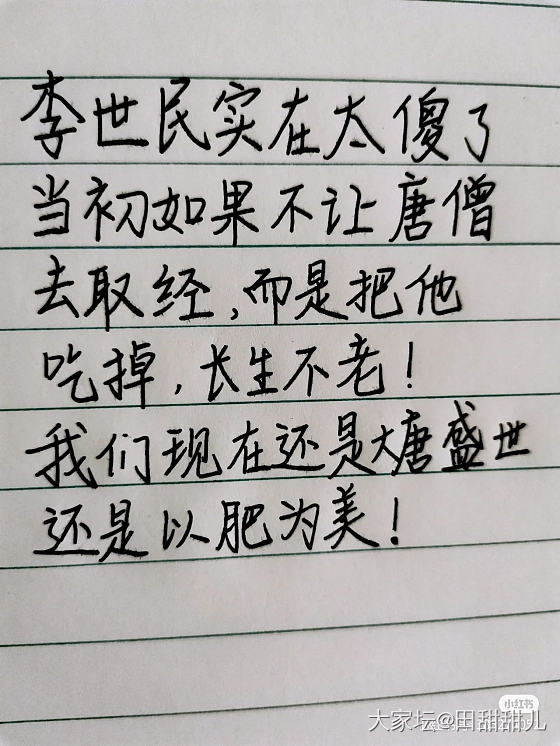 李世民实在太傻了
当初如果不让唐僧
去取经,而是把他
吃掉,长生不老!
我们现在还是大唐盛世
还是以肥为美!
小红书
大家坛@田甜甜儿